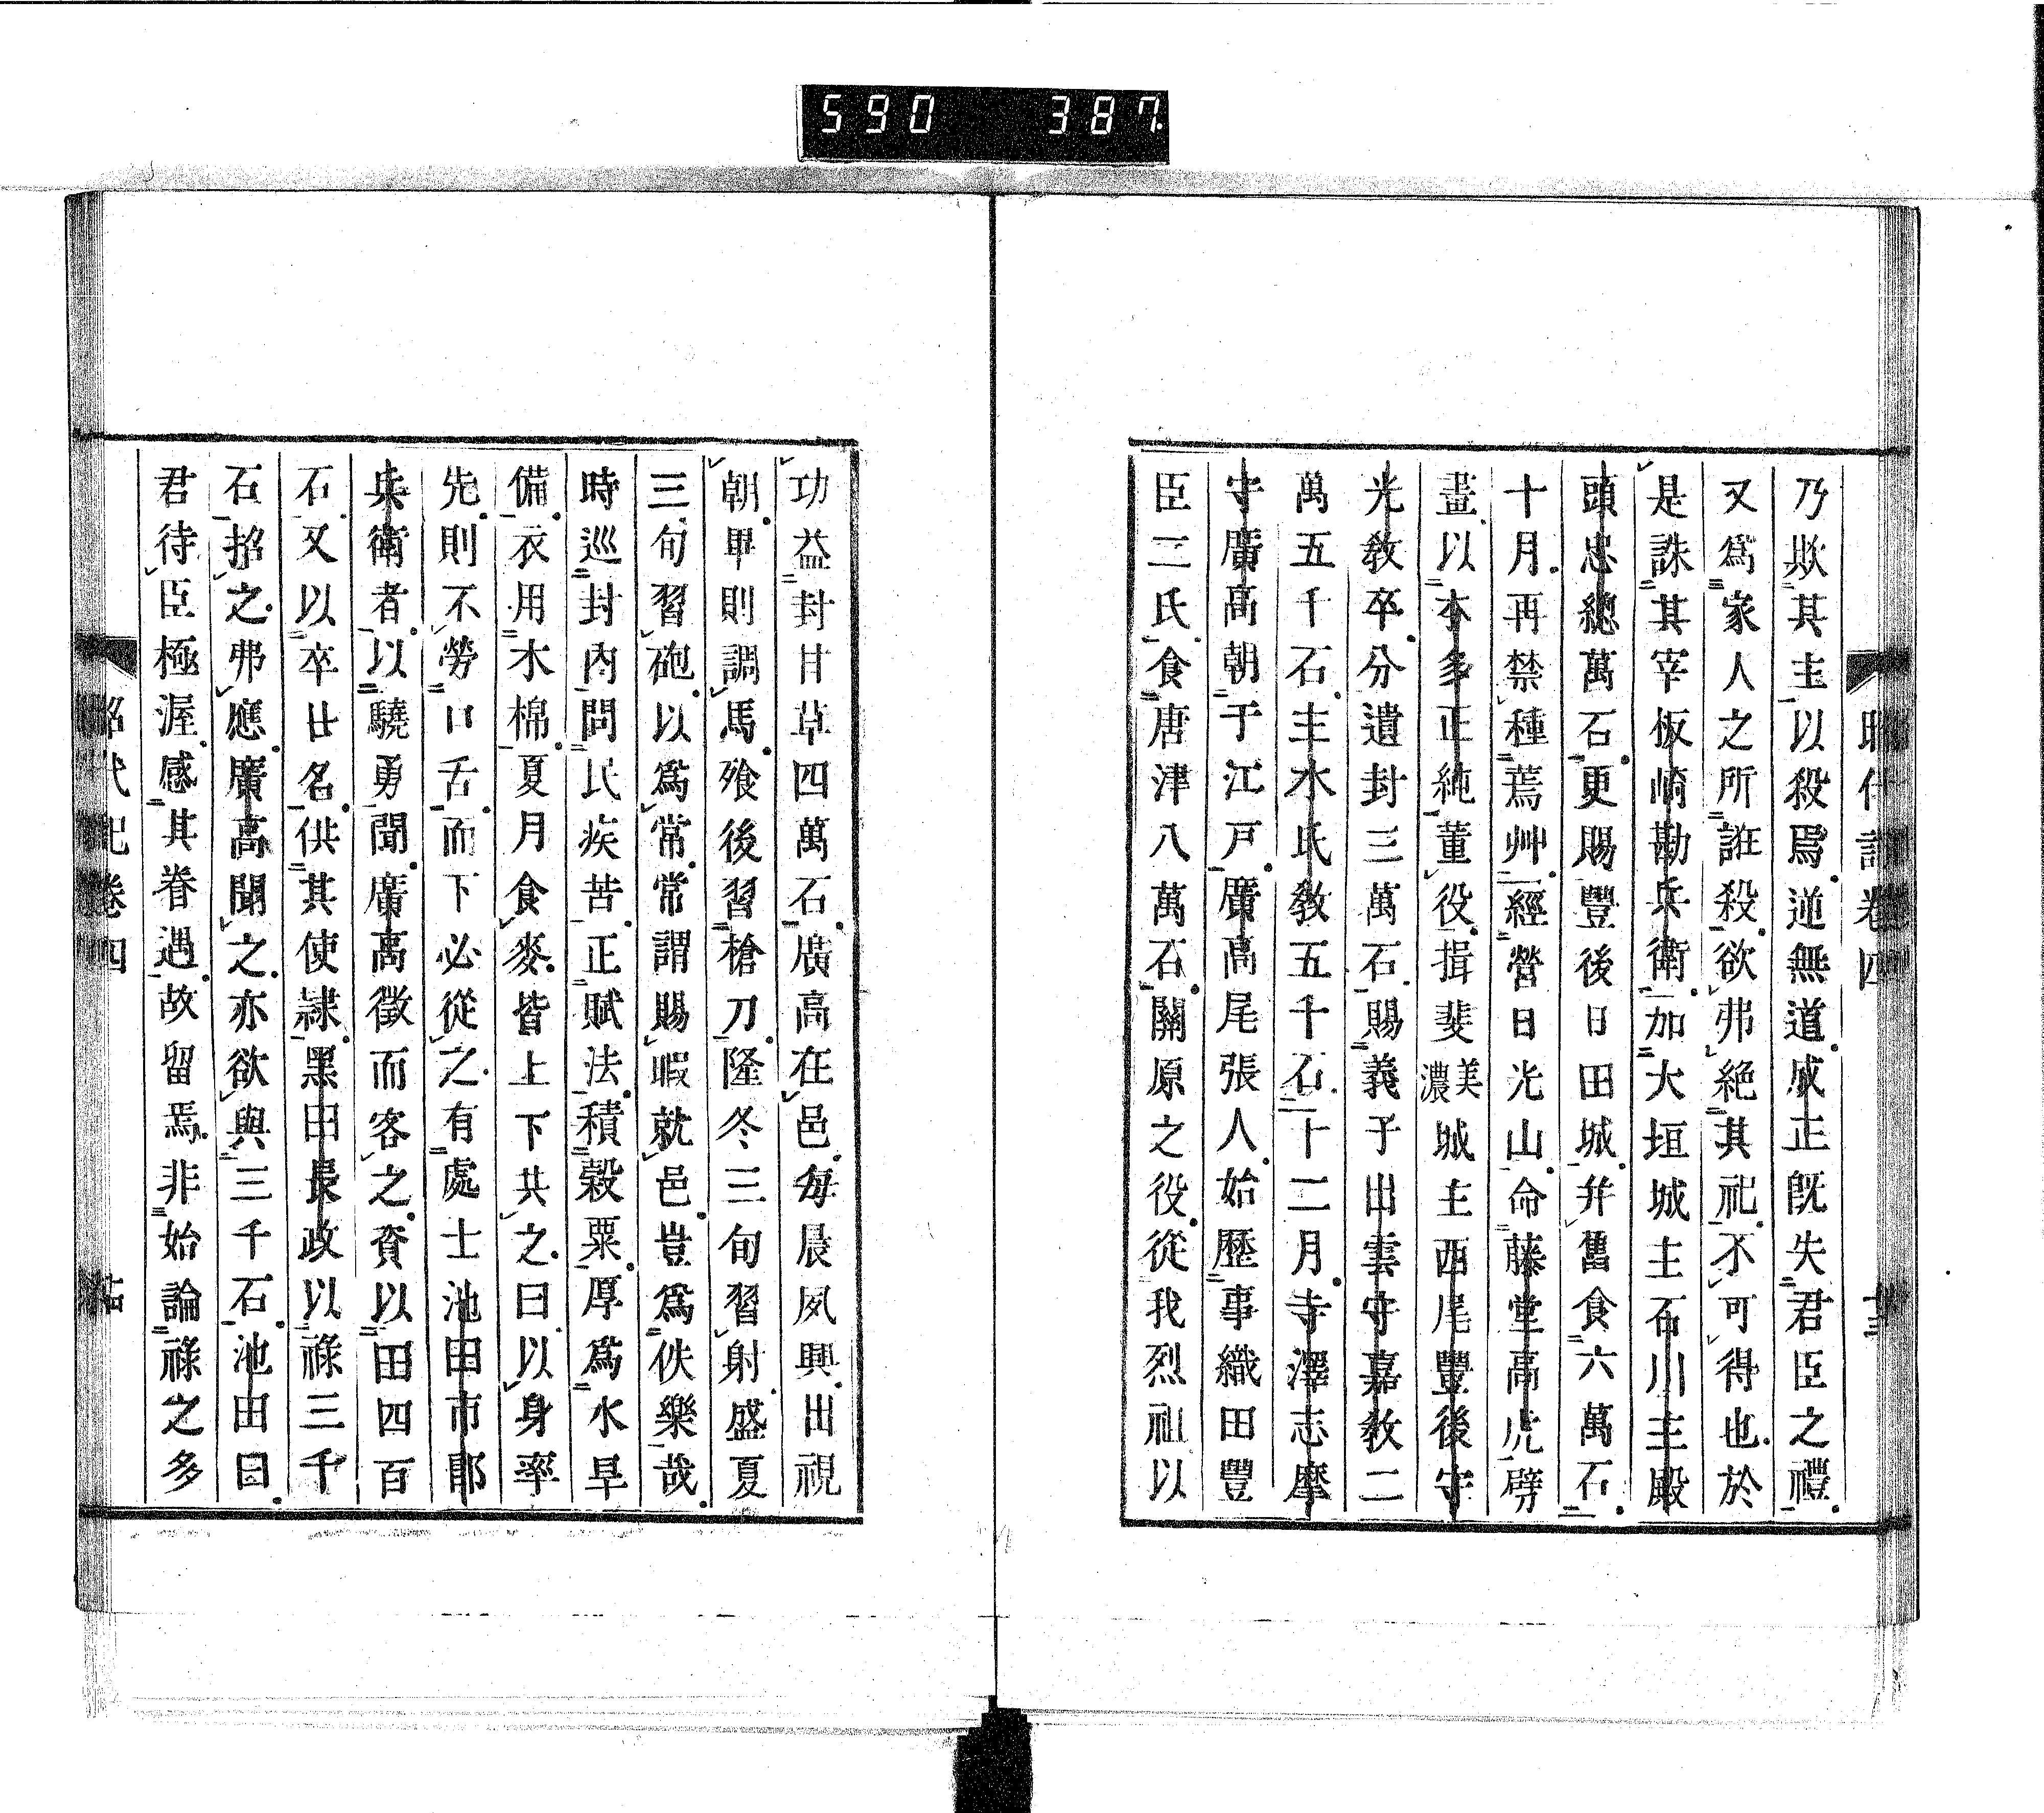 590 387
昭代記卷四
乃欺其主以殺焉逆無道成正既失君臣之禮
又爲家人之所誑殺欲弗絕其祀不可得也於
是誅其宰板崎勘兵衛加大垣城主石川主殿
頭忠總萬石更賜豐後日田城幷舊食六萬石
十月再禁種蔫艸經營日光山命藤堂高虎劈
畫以本多正純董役揖斐美濃城主西尾豐後守
光敎卒分遺封三萬石賜義子出雲守嘉敎二
萬五千石主水氏敎五千石十二月寺澤志摩
守廣高朝于江戸廣高尾張人始歷事織田豐
臣二氏食唐津八萬石關原之役從我烈祖以
功益封甘草四萬石廣高在邑每晨夙興出視
朝畢則調馬飱後習槍刀隆冬三旬習射盛夏
三旬習砲以爲常常謂賜暇就邑豈爲佚樂哉
時巡封內問民疾苦正賦法積穀粟厚爲水旱
備衣用木棉夏月食麥皆上下共之曰以身率
先則不勞口舌而下必從之有處士池田市郎
兵衛者以驍勇聞廣高徵而客之資以田四百
石又以卒廿名供其使隷黑田長政以祿三千
石招之弗應廣高聞之亦欲與三千石池田曰
君待臣極渥感其眷遇故留焉非始論祿之多
昭代記卷四